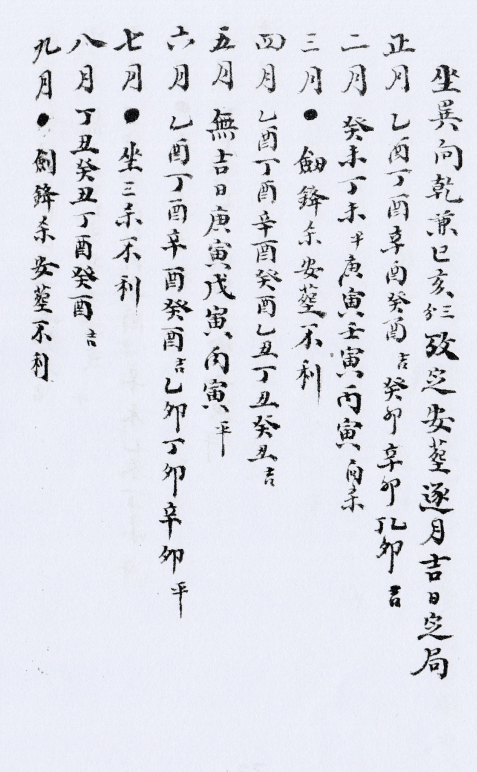 坐巽向乾兼巳亥三分攷定安葬逐月吉日定局
正月 乙酉丁酉辛酉癸酉吉癸卯辛卯丁卯乙卯吉
二月 癸未丁未平庚寅壬寅丙寅向杀
三月●劍鋒杀安葬不利
四月 乙酉丁酉辛酉癸酉乙丑丁丑癸丑吉
五月 無吉日庚寅戊寅丙寅平
六月 乙酉丁酉辛酉癸酉吉乙卯丁卯辛卯平
七月●坐三杀不利
八月 丁丑癸丑丁酉癸酉吉
九月●劍鋒杀安葬不利